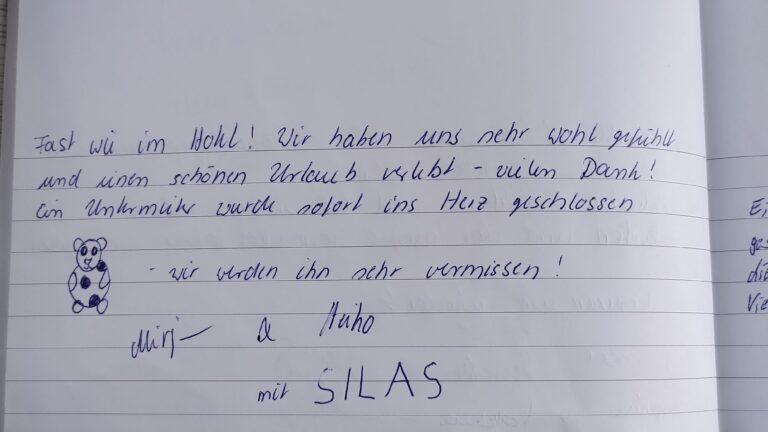 Fast wie im Hotel! Wir haben uns sehr wohl gefühlt
und einen schönen Urlaub verlebt - vielen Dank!
Ein Untermieter wurde sofort ins Herz geschlossen
- wir werden ihn sehr vermissen!
&
mit SILAS
Ei
ge
die
Vie